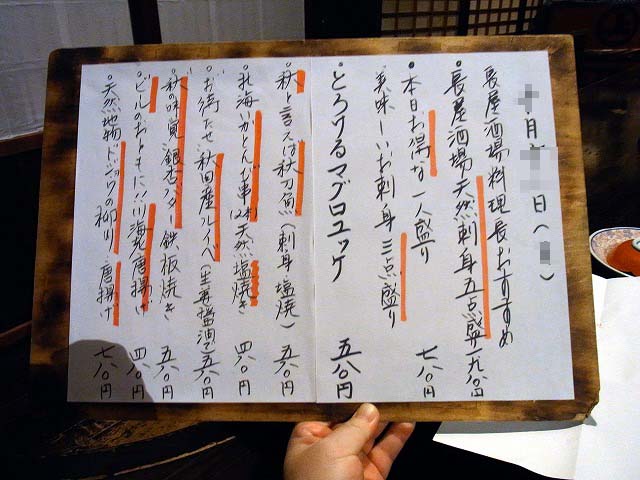 月 日（ ）
長屋酒場料理長おすすめ
・長屋酒場天然刺身五点盛 一九八〇円
・本日お得な一人盛り 七八〇円
美味しいお刺身三点盛り
・とろけるマグロユッケ 五八〇円
・秋と言えば秋刀魚（刺身・塩焼） 五八〇円
・北海いかとんび串（2本）天然塩焼き 四八〇円
・お待たせ秋田産ルイベ（生姜醤油で） 五八〇円
・秋の味覚！銀杏バター鉄板焼き 五八〇円
・ビールのおともに！！川海老唐揚げ 四八〇円
・天然地物ドジョウの柳川・唐揚げ 七八〇円